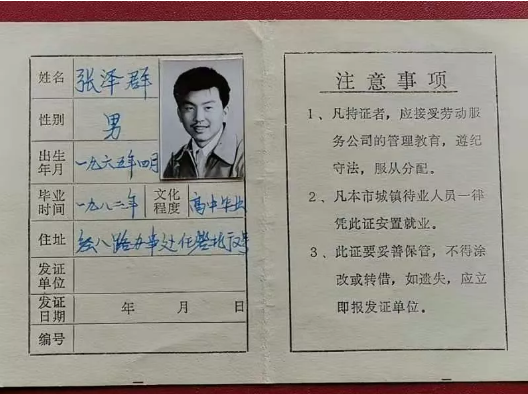 姓名 张泽群
性别 男
出生年月 一九六五年四月
毕业时间 一九八二年 文化程度 高中毕业
住址 经八路办事处任砦北
发证单位
发证日期 年 月 日
编号
注意事项
1、凡持证者，应接受劳动服
务公司的管理教育，遵纪
守法，服从分配。
2、凡本市城镇待业人员一律
凭此证安置就业。
3、此证要妥善保管，不得涂
改或转借，如遗失，应立
即报发证单位。